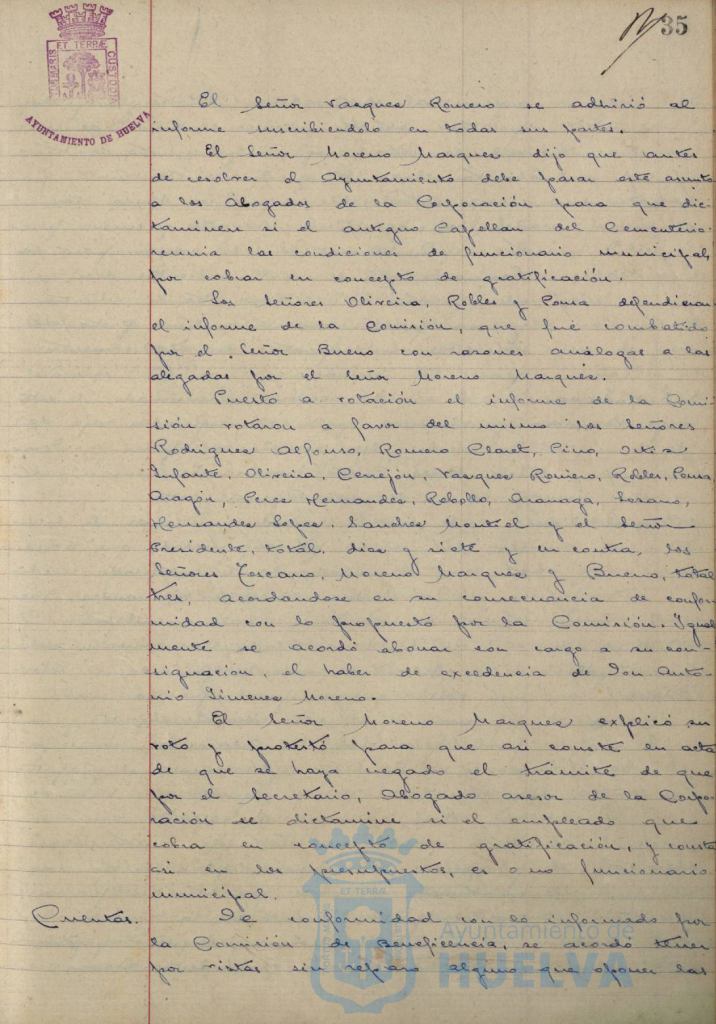 35
PORTUS MARIS ET TERRÆ CUSTODIA
AYUNTAMIENTO DE HUELVA
El Señor Vazquez Romero se adhirió al
informe suscribiendolo en todas sus partes.
El Señor Moreno Marquez dijo que antes
de resolver el Ayuntamiento debe pasar este asunto
a los Abogados de la Corporación para que dic-
taminen si el antiguo Capellan del Cementerio
reunia las condiciones de funcionario municipal,
por cobrar en concepto de gratificación.
Los Señores Oliveira, Robles y Ponsa defendieron
el informe de la Comisión, que fué combatido
por el Señor Bueno con razones análogas a las
alegadas por el Señor Moreno Marquez.
Puesto a votación el informe de la Comi-
sión votaron a favor del mismo los Señores
Rodriguez Alfonso, Romero Claret, Pino, Ortiz
Infante, Oliveira, Cerrejón, Vazquez Romero, Robles, Ponsa,
Aragón, Perez Hernandez, Rebollo, Aranaga, Lozano,
Hernandez Lopez, Sanchez Montiel y el Señor
Presidente, total, diez y siete y en contra, los
Señores Toscano, Moreno Marquez y Bueno, total
tres, acordandose en su consecuencia de confor-
midad con lo propuesto por la Comisión. Igual-
mente se acordó abonar con cargo a su con-
signación, el haber de excedencia de Don Anto-
nio Jimenez Moreno.
El Señor Moreno Marquez explicó su
voto y protestó para que asi conste en acta
de que se haya negado el trámite de que
por el Secretario, Abogado asesor de la Corpo-
ración se dictamine si el empleado que
cobra en concepto de gratificación, y consta
asi en los presupuestos, es o no funcionario
municipal.
Cuentas. De conformidad con lo informado por
la Comisión de Beneficencia, se acordó tener
por vistas sin reparo alguno que oponer las
Ayuntamiento de
HUELVA